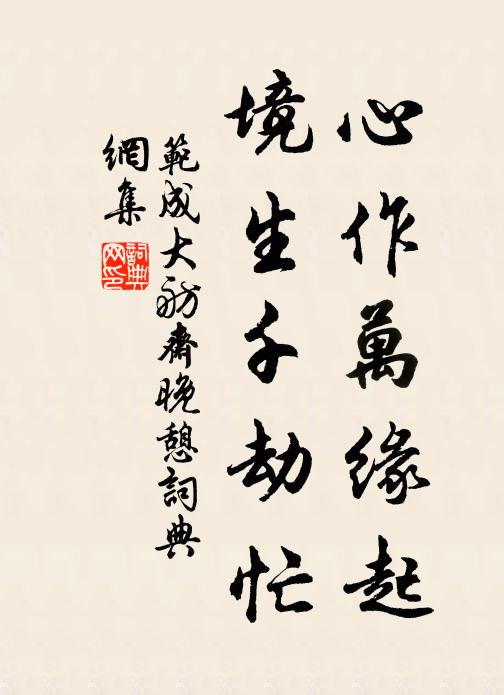 心作萬緣起
境生千劫忙
範成大舫齋晚憩詞典
網集
詞典網印